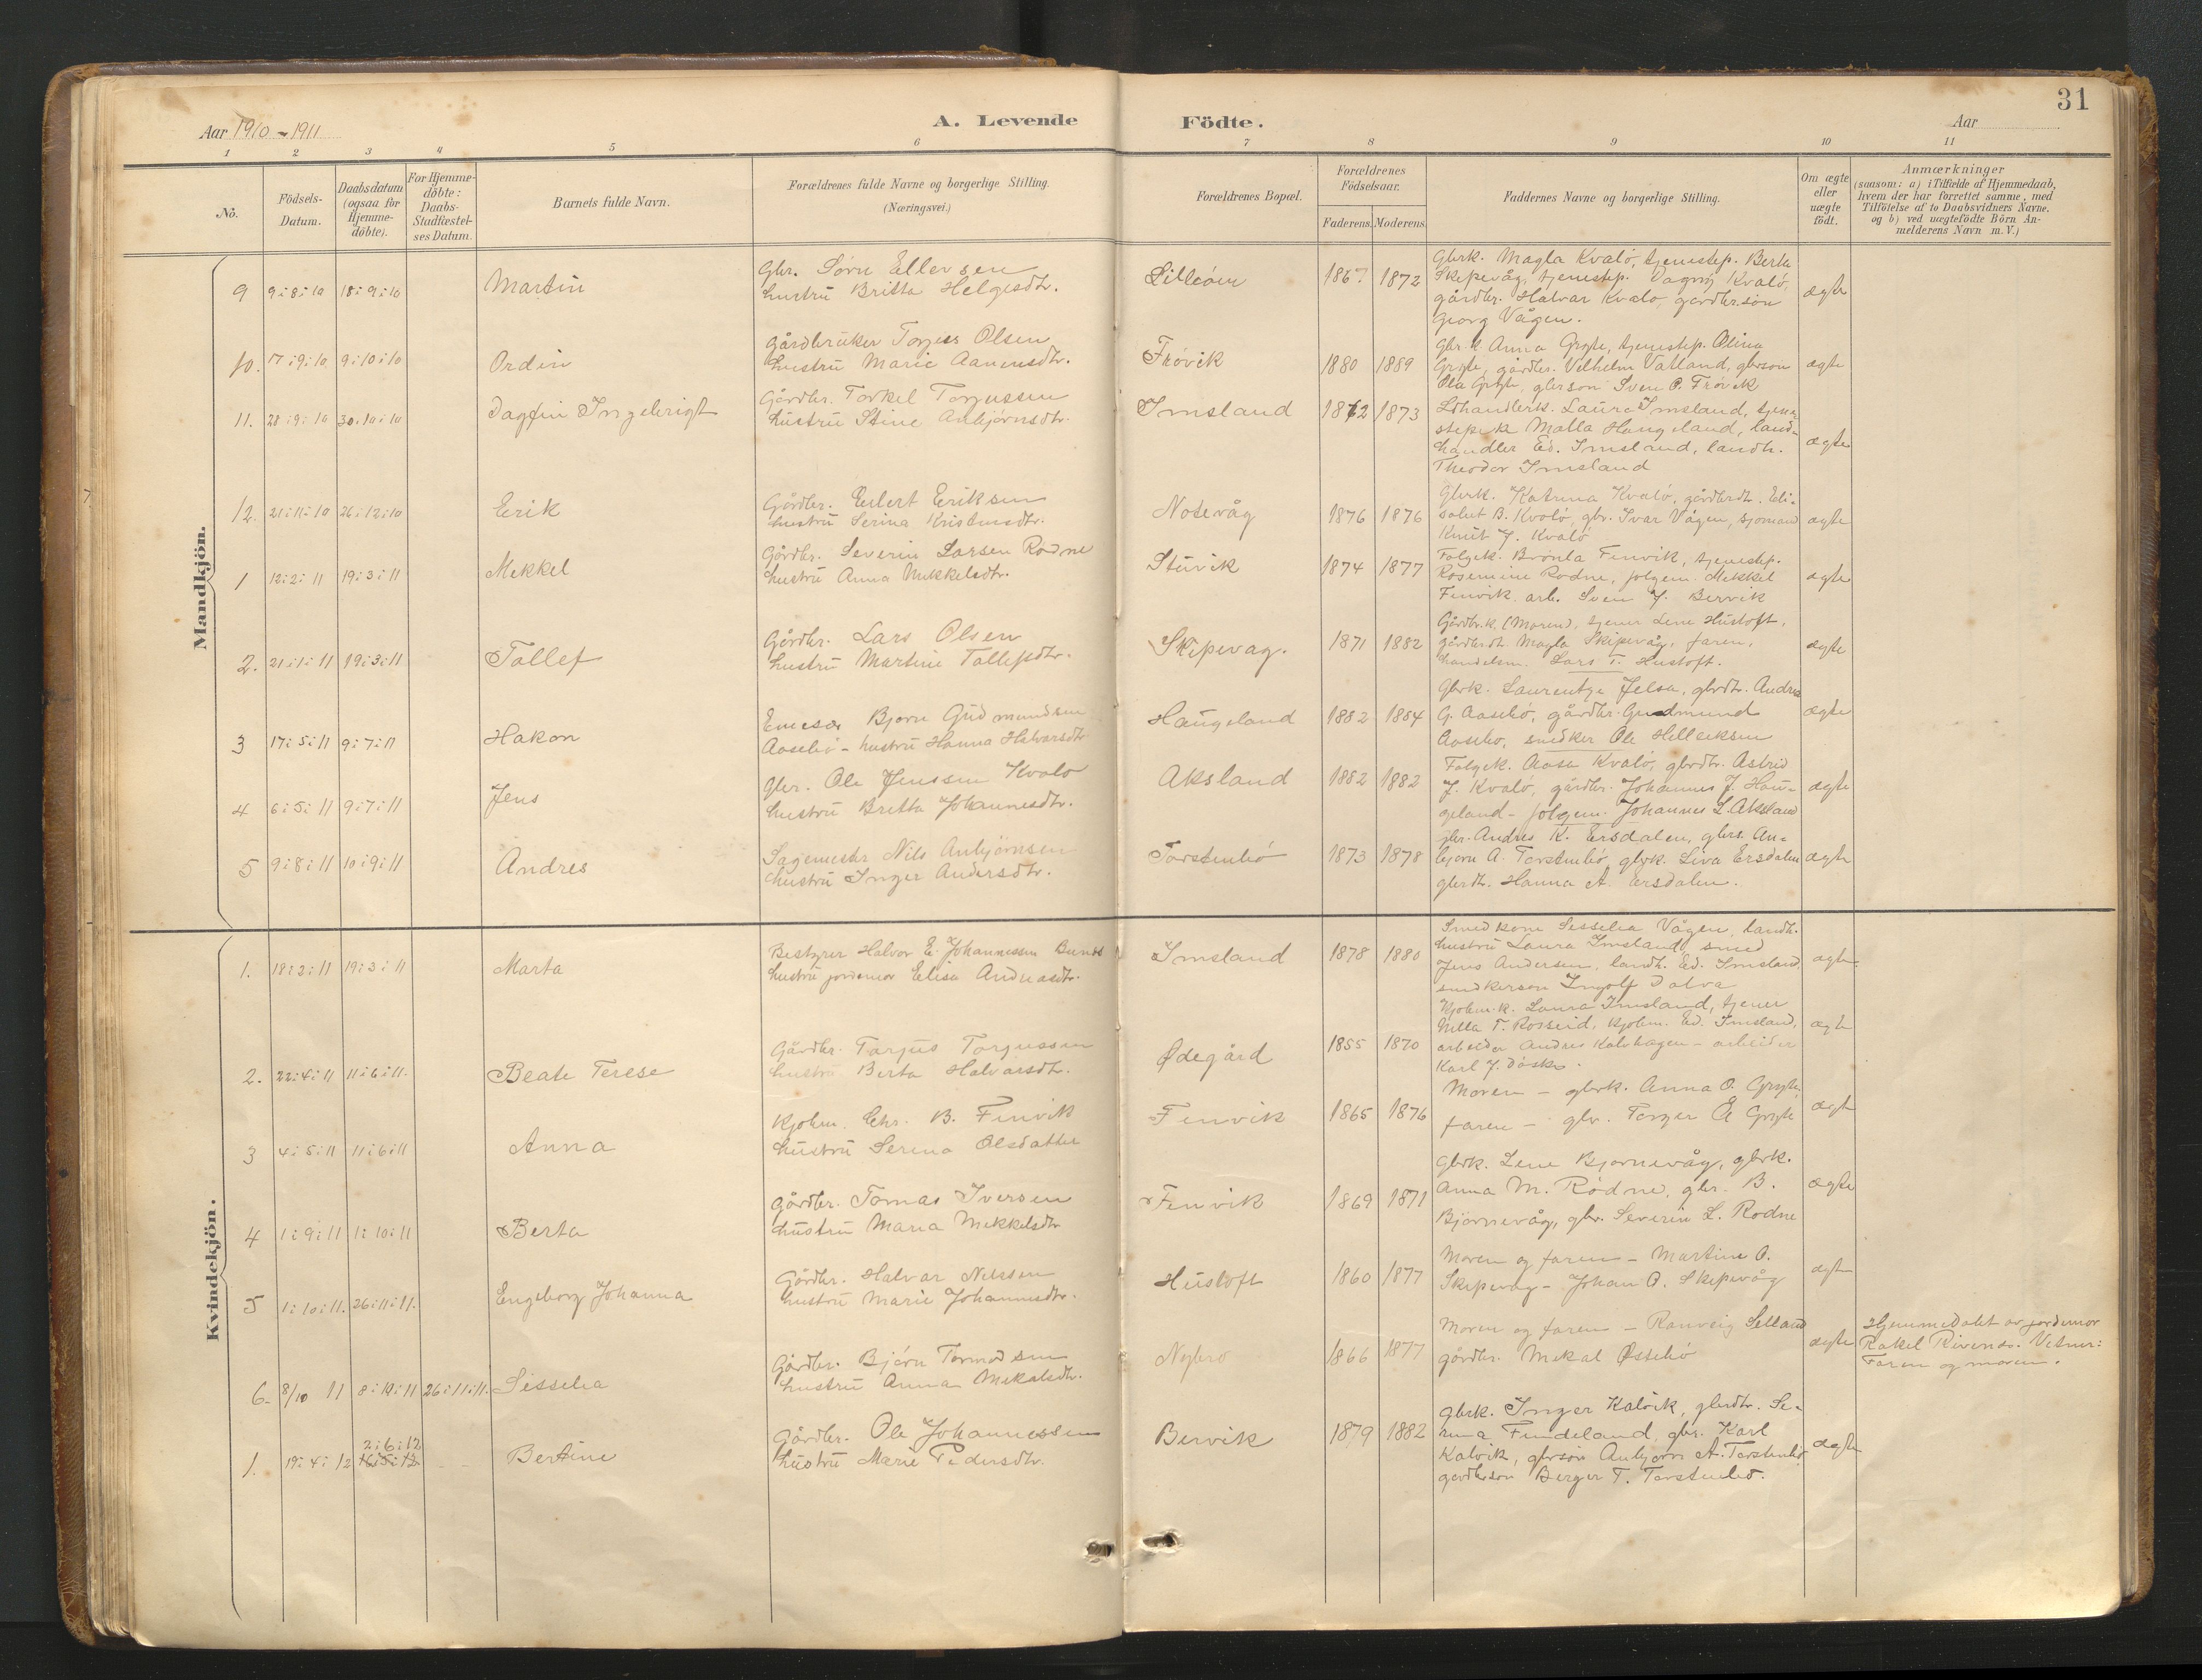 31
Aar 1910-1911
A. Levende Födte.
Aar
1 2 3 4 5 6 7 8 9 10 11
No.
Födsels-
Datum.
Daabsdatum
(ogsaa for
Hjemme-
döbte).
For Hjemme-
döbte:
Daabs-
Stadfæstel-
ses Datum.
Barnets fulde Navn.
Forældrenes fulde Navne og borgerlige Stilling.
(Næringsvei.)
Forældrenes Bopæl.
Forældrenes
Födselsaar.
Faderens. Moderens.
Faddernes Navne og borgerlige Stilling.
Om ægte
eller
uægte
födt.
Anmærkninger
(saasom: a) i Tilfælde af Hjemmedaab,
hvem der har forrettet samme, med
Tilföielse af to Daabsvidners Navne.
og b) ved uægtefödte Börn An-
melderens Navn m. V.)
Mandkjön.
9 9:8:10 18:9:10 Martin
Gbr. Sörn Ellevsen
hustrü Britta Helgesdtr.
Lilleöen 1867 1872
Gbrk. Magla Kvalö, tjenestep. Berta
Skipevåg, tjenestep. Dagny Kvalö,
gårdbr. Halvar Kvalö, gårdbr.sön
Georg Vågen.
ægte
10. 17:9:10 9:10:10 Ordin
gårdbrüker Torjess Olsen
hustrü Marie Aanensdtr.
Frövik 1880 1889
Gbr.k. Anna Gryte, tjenestep. Olina
Gryte, gårdbr. Vilhelm Vatland, gbrson
Ola Gryte, gbrson Sven O. Frövik
ægte
11. 28:9:10 30:10:10 Dagfin Ingebrigt
Gårdbr. Torkel Torjussen
hüstrü Stine Anbjörnsdtr.
Imsland 1872 1873
Ldhandlerk. Laura Imsland, tjene
step. Malla Haugeland, land-
handler Ed. Imsland, landh.
Theodor Imsland
ægte
12. 21:11:10 26:12:10 Erik
Gårdbr. Eilert Eriksen
hustrü Serina Kristensdtr.
Notevåg 1876 1876
Gbrk. Katrina Kvalö, gårdbrdtr. Eli-
sabet B. Kvalö, gbr. Ivar Vågen, sjömand
Knüt J. Kvalö
ægte
1 12:2:11 19:3:11 Mekkel
Gårdbr. Severin Larsen Rödne
hustrü Anna Mekkelsdtr.
Stüvik 1874 1877
Folgek. Brönla Fenvik, tjenestep.
Rosemine Rodne, folgem. Mekkel
Fenvik arb. Sven J. Bervik
ægte
2. 21:1:11 19:3:11 Tollef
Gårdbr. Lars Olsen
hustrü Martine Tollefsdtr.
Skipevag. 1871 1882
Gårdbr.k. (Moren), tjener Lene Hüstoft,
gårdbrdt. Magla Skipevåg, faren,
handelsm. Lars T. Hustoft.
ægte
3 17:5:11 9:7:11 Hakon
Bjorn Güdmundsen
Aasebö - hustrü Hanna Halvarsdtr
Haügeland 1882 1884
Gbrk. Laurentze Jelsa, gbrdtr. Andrea
G. Aasebö, gårdbr. Gudmund
Aasebo, snedker Ole Helleiksen
ægte
4 6:5:11 9:7:11 Jens
Gbr. Ole Jenssen Kvalo
hustrü Britta Johannesdtr.
Aksland 1882 1882
Folgek. Aasa Kvalö, gbrdtr. Astrid
J. Kvalö, gårdbr. Johannes J. Hau-
geland - folgem. Johannes L. Aksland
ægte
5 9:8:11 10:9:11 Andres
Sagemester Nils Anbjörnsen
hustrü Inger Andersdtr.
Torstenbö 1873 1878
gbr. Andres K. Ersdalen, gbrs. An-
bjorn A. Torstenbö, gbrk. Siva Ersdalen
gbrdtr. Hanna A. Ersdalen.
ægte
Kvindekjön.
1. 18:2:11 19:3:11 Marta
Bestyrer Halvor E. Johannessen
hustrü jordemor Elisa Andreasdtr.
Imsland 1878 1880
Smedkone Sesselia Vågen, landh.
hustrü Laura Imsland, smed
Jens Andersen, landh. Ed. Imsland,
snedkerson Ingolf Dalva
ægte.
2. 22:4:11 11:6:11. Beate Terese
Gårdbr. Torjus Torjussen
hustru Berta Halvarsdtr.
Ødegård 1855 1870
Kjobm.k. Laura Imsland, tjener
Nilla T. Rosseid, kjobm. Ed. Imsland,
arbeider Andres Kalvhagen - arbeider
Karl J.
ægte
3 4:5:11 11:6:11 Anna
Kjobm. Chr. B. Fenvik
hustrü Serena Olsdatter
Fenvik 1865 1876
Moren - gbrk. Anna O. Gryte,
faren - gbr. Torger O. Gryte
ægte
4 1:9:11 1:10:11 Berta
Gårdbr. Tomas Iversen
hustrü Maria Mekkelsdtr
Fenvik 1869 1871
Gbrk. Lene Bjornevåg, gbrk.
Anna M. Rödne, gbr. B.
Bjornevåg, gbr. Severin L. Rodne
ægte
5 1:10:11. 26:11:11. Engeborg Johanna
Gårdbr. Halvar Nilssen
hustrü Marie Johannesdtr.
Hüstoft 1860 1877
Moren og faren - Martine O.
Skipevag - Johan O. Skipevåg
ægte
6. 8/10 11 8:10:11 26:11:11. Sisselia
Gårdbr. Björn Tormodsen
hustrü Anna Mekalsdtr.
Nybro 1866 1877
Moren og faren - Ranveig Selland
gårdbr. Mekal Østebö
ægte
Hjemmedobt av jordemor
Rakel Rivenes. Vitner:
Faren og moren.
1. 19:4:12 2:6:12 16:5:12 - - Bertine
Gårdbr. Ole Johannessen
Hüstrü Marie Pedersdtr.
Bervik 1879 1882
Gbrk. Inger Kalvik, gbrdtr. Se-
rina Fundeland, gbr. Karl
Kalvik, gbrsön Anbjorn A. Torstenbö
gardbrson Berger T. Torstenbö.
ægte